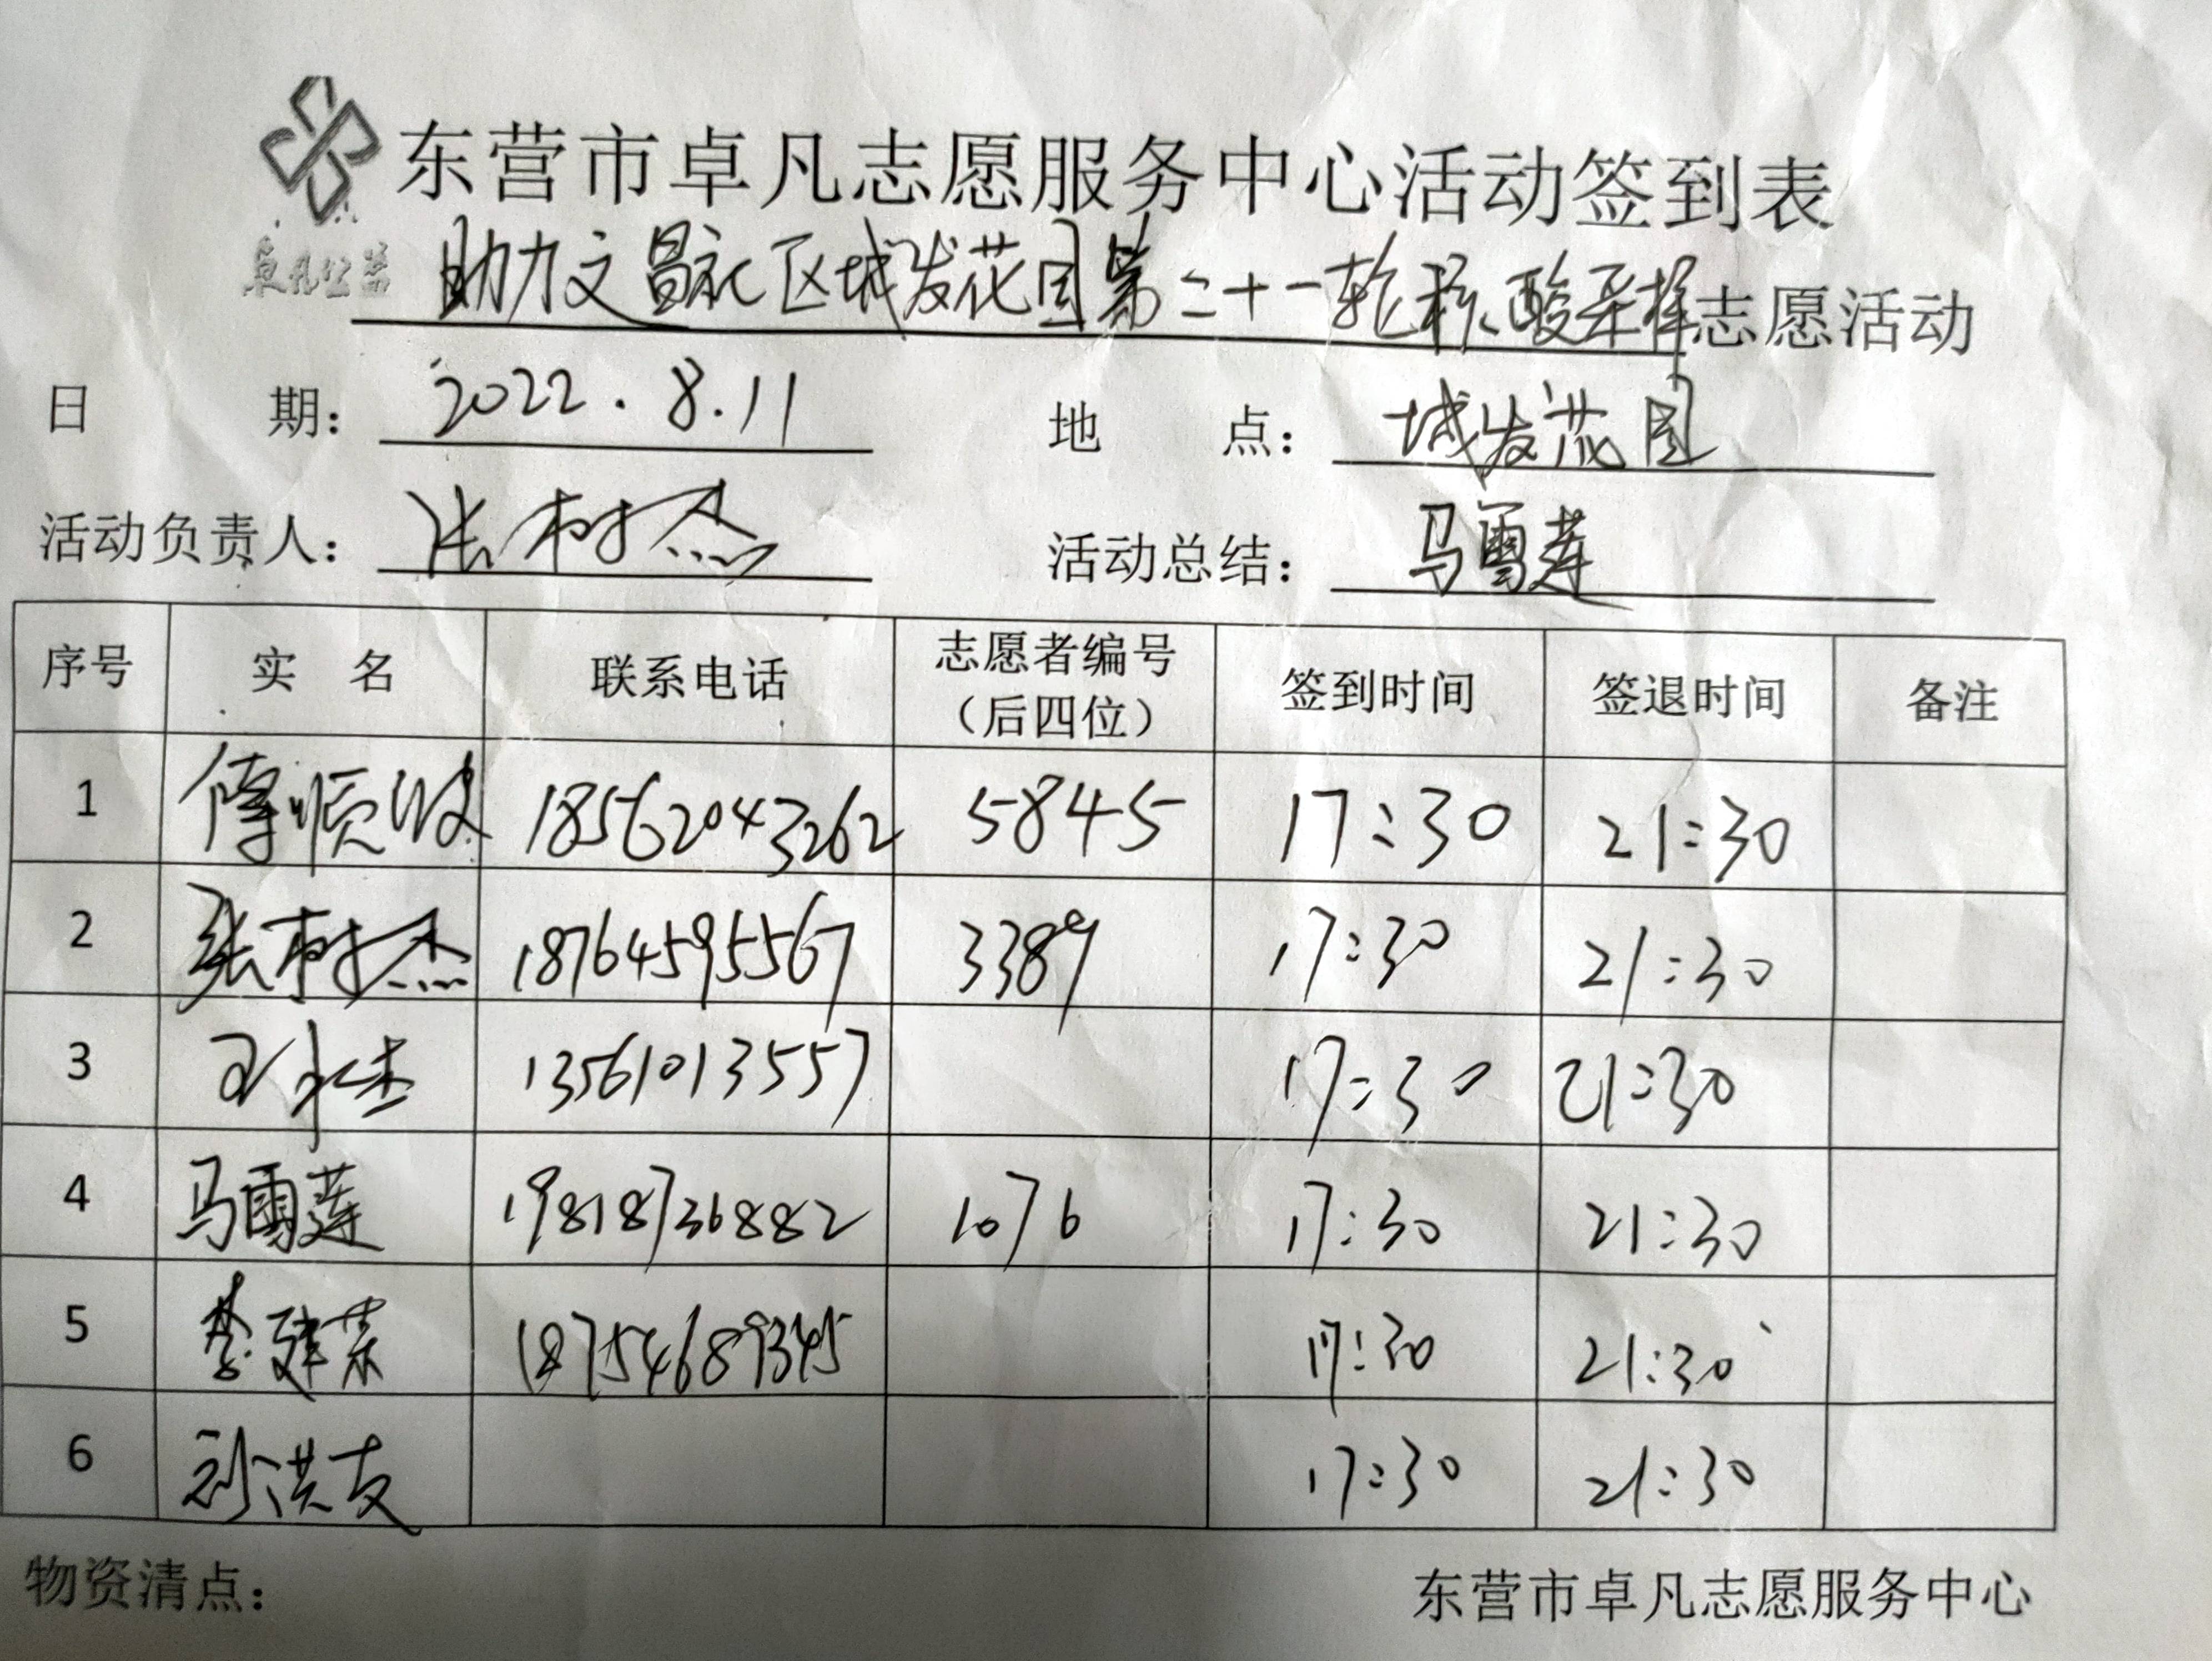 东营市卓凡志愿服务中心活动签到表
卓凡公益
助力文昌社区城发花园第二十一轮核酸采样志愿活动
日期： 2022.8.11 地点： 城发花园
活动负责人： 张树杰 活动总结： 马雪莲
序号 实名 联系电话 志愿者编号（后四位） 签到时间 签退时间 备注
1 傅顺波 18562043262 5845 17:30 21:30
2 张树杰 18764595567 3389 17:30 21:30
3 13561013557 17:30 21:30
4 马雪莲 19818736882 1076 17:30 21:30
5 李建荣 18754689345 17:30 21:30
6 孙洪友 17:30 21:30
物资清点： 东营市卓凡志愿服务中心